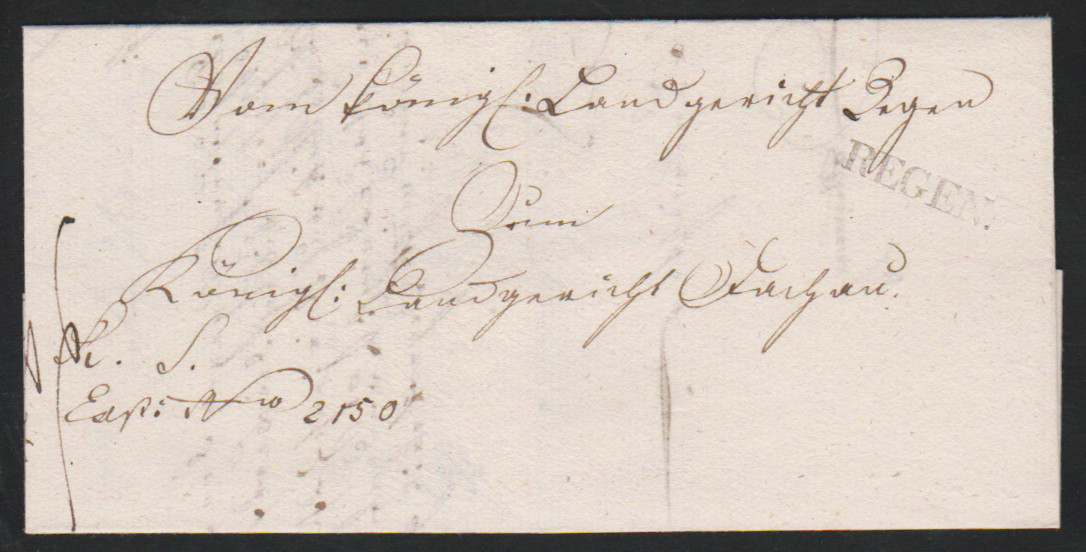 Vom königl: Landgericht Regen
REGEN.
Zum
Königl: Landgericht Dachau.
R. S.
Exp: Nro 2150